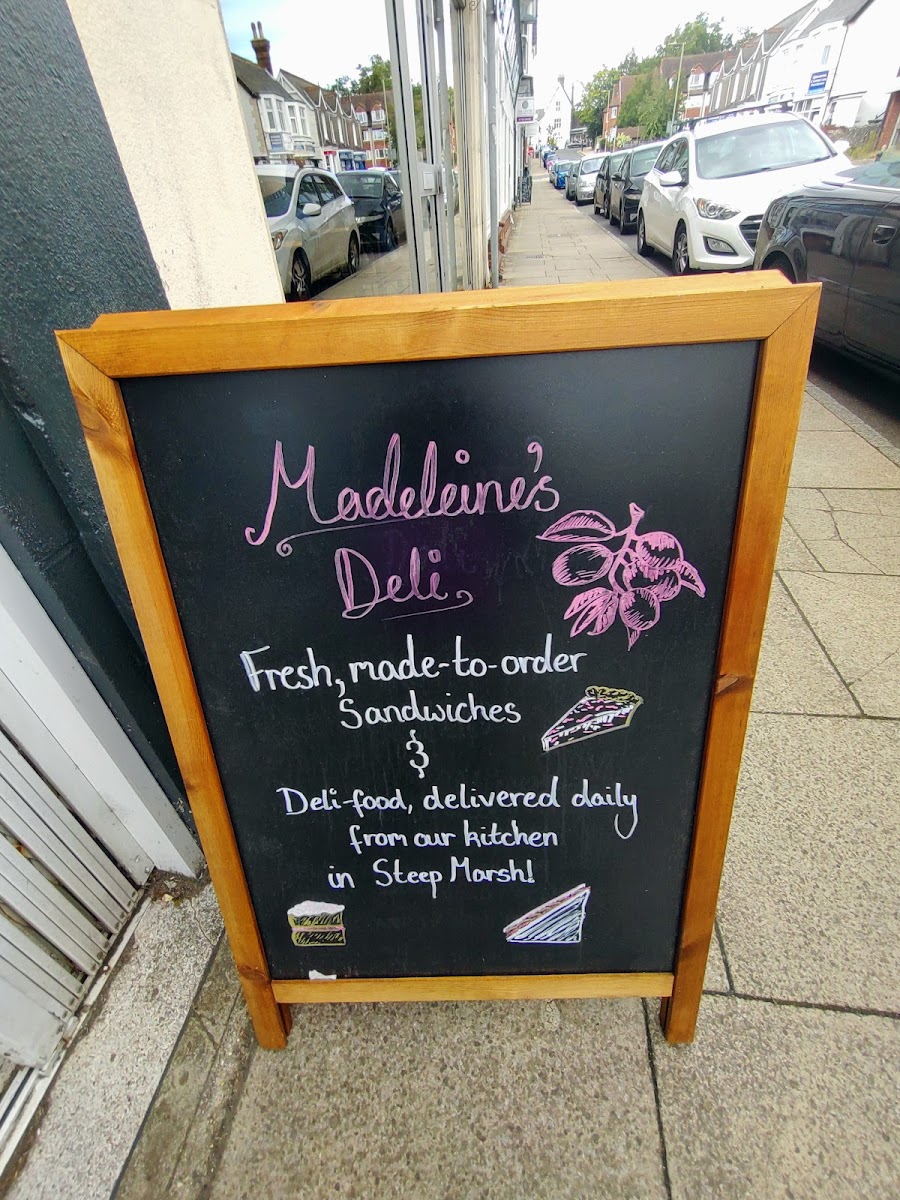 Madeleine's
Deli
Fresh, made-to-order
Sandwiches
&
Deli-food, delivered daily
from our kitchen
in Steep Marsh!